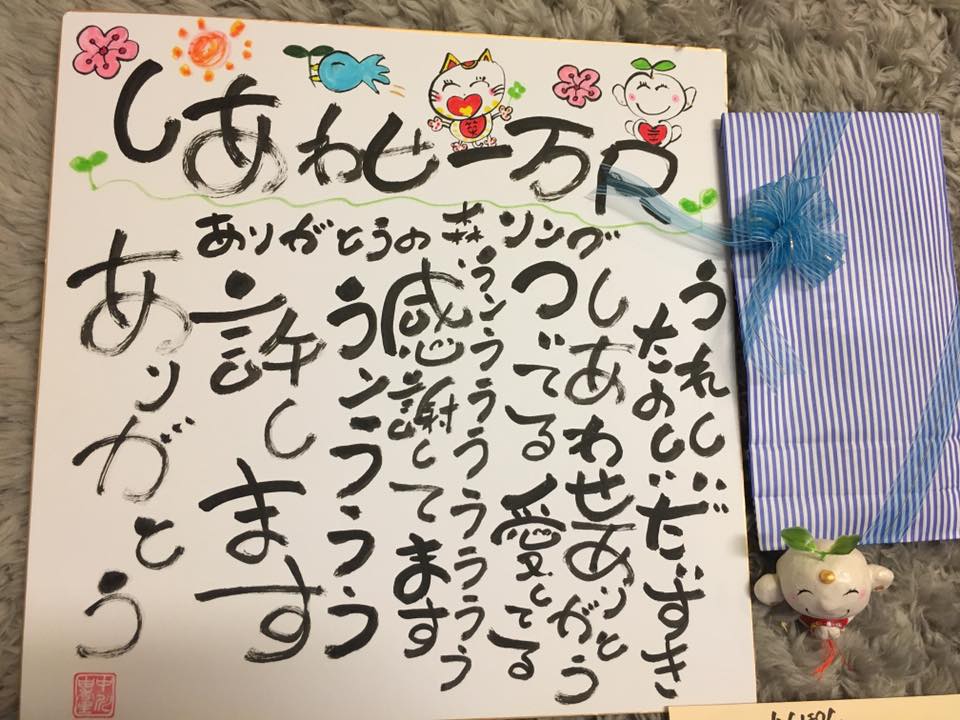 しあわせ一万尺
ありがとうの森ソング
うれしい
たのしい
だいすき
しあわせありがとう
ついてる愛してる
ランララララララ
感謝してます
ランラララ
許します
ありがとう